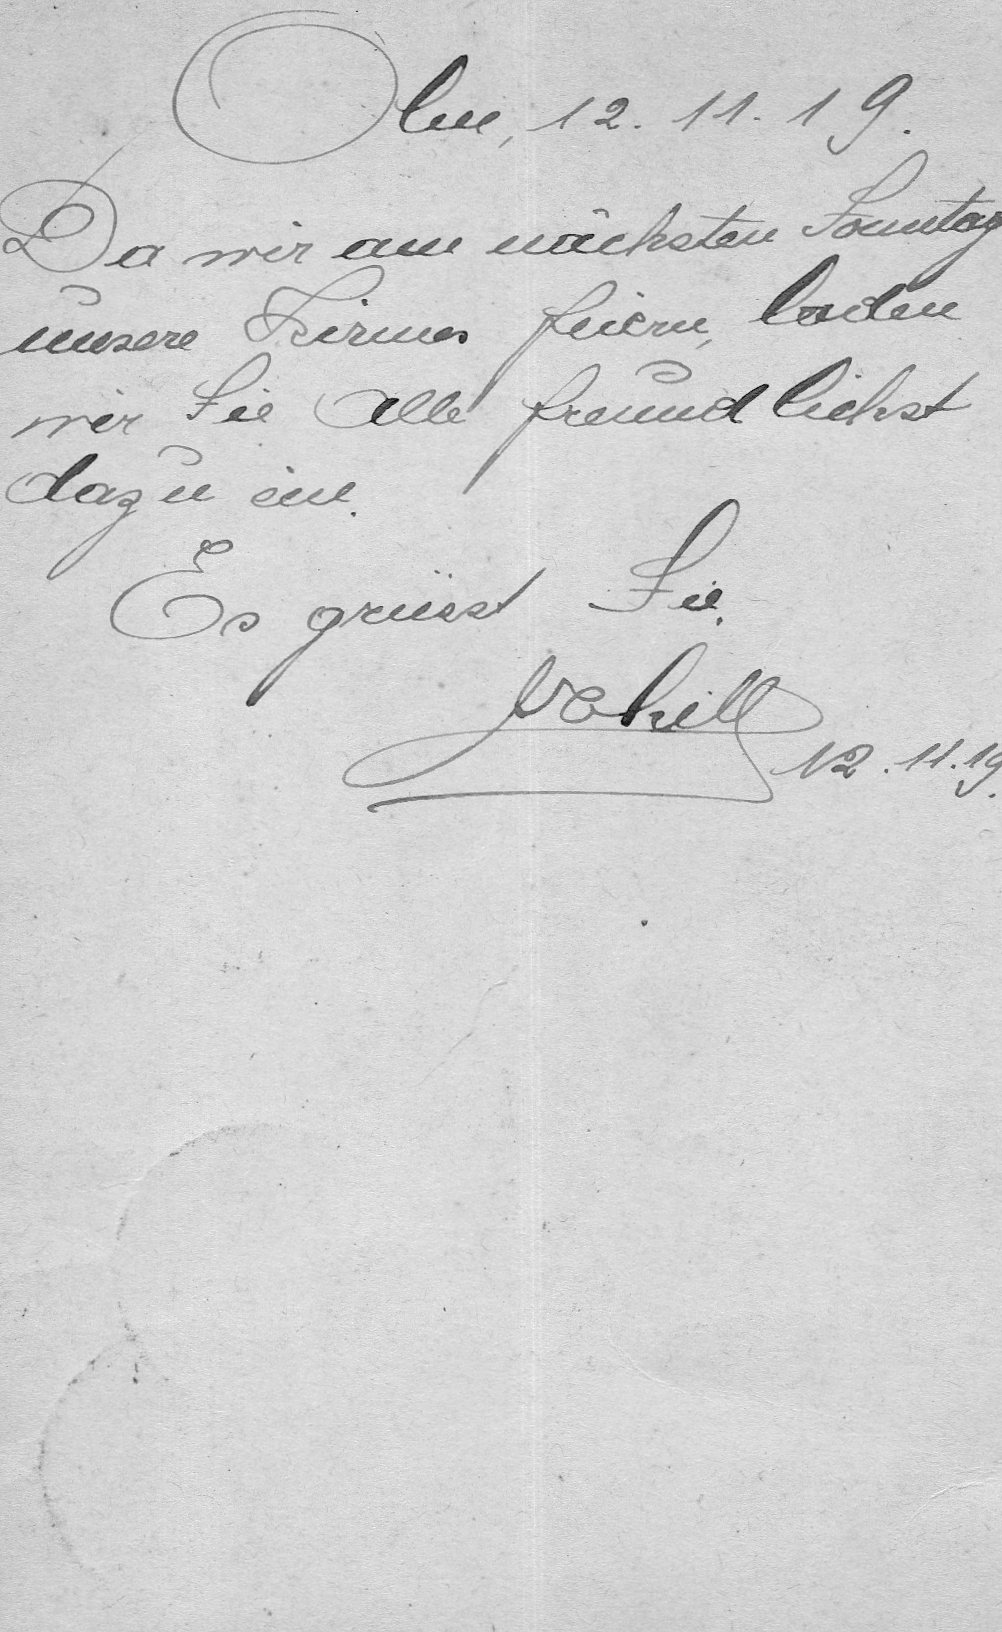 Olm, 12. 11. 19.
Da wir am nächsten Sonntag
unsere Kirmes feiern, laden
wir Sie Alle freundlichst
dazu ein.
Es grüsst Sie.
12. 11. 19.